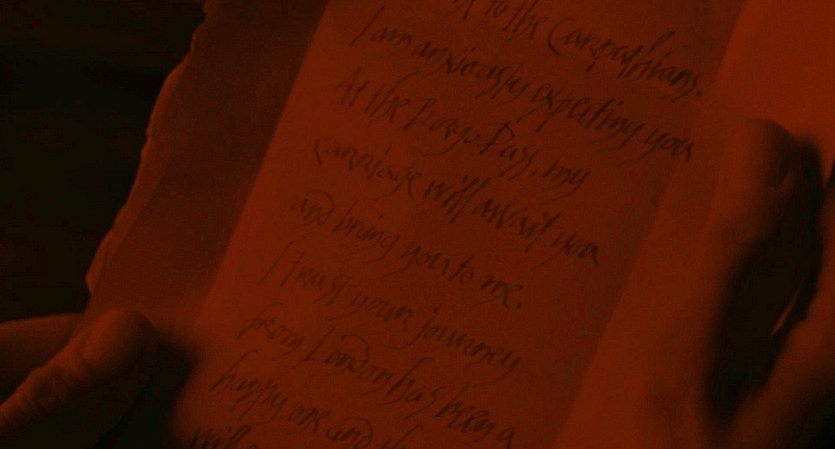 to the Carpathians.
I am anxiously expecting you
At the Borgo Pass, my
carriage will await you
and bring you to me.
I trust your journey
from London has been a
happy one and
will